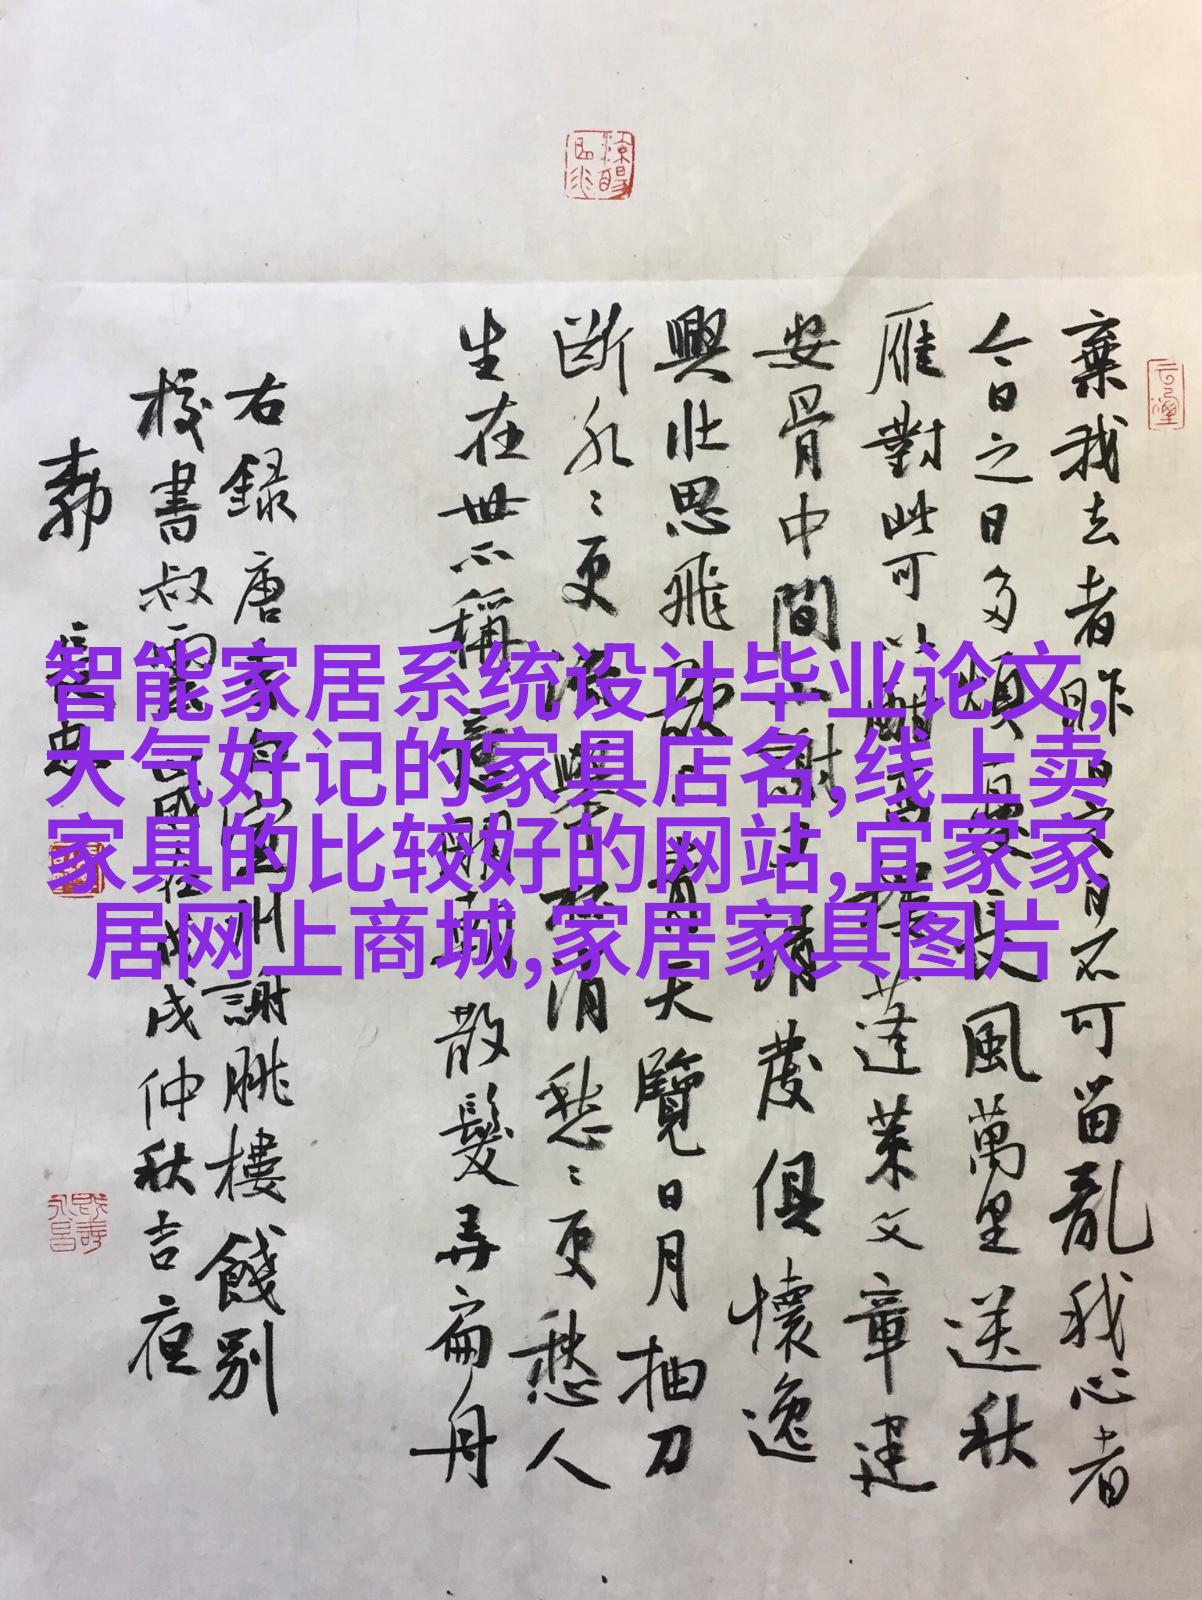 棄我去者昨日之日不可留亂我心者
今日之日多煩憂長風萬里送秋
雁對此可以酣高樓蓬萊文章建
安骨中間小謝又清發俱懷逸
興壯思飛欲上青天覽日月抽刀
斷水〻更流舉杯消愁〻更愁人
生在世不稱意明朝散髮弄扁舟
右録唐李白宣州謝朓樓餞別
校書叔雲在戊戌仲秋吉夜
智能家居系统设计毕业论文,
大气好记的家具店名,线上卖
家具的比较好的网站,宜家家
居网上商城,家居家具图片